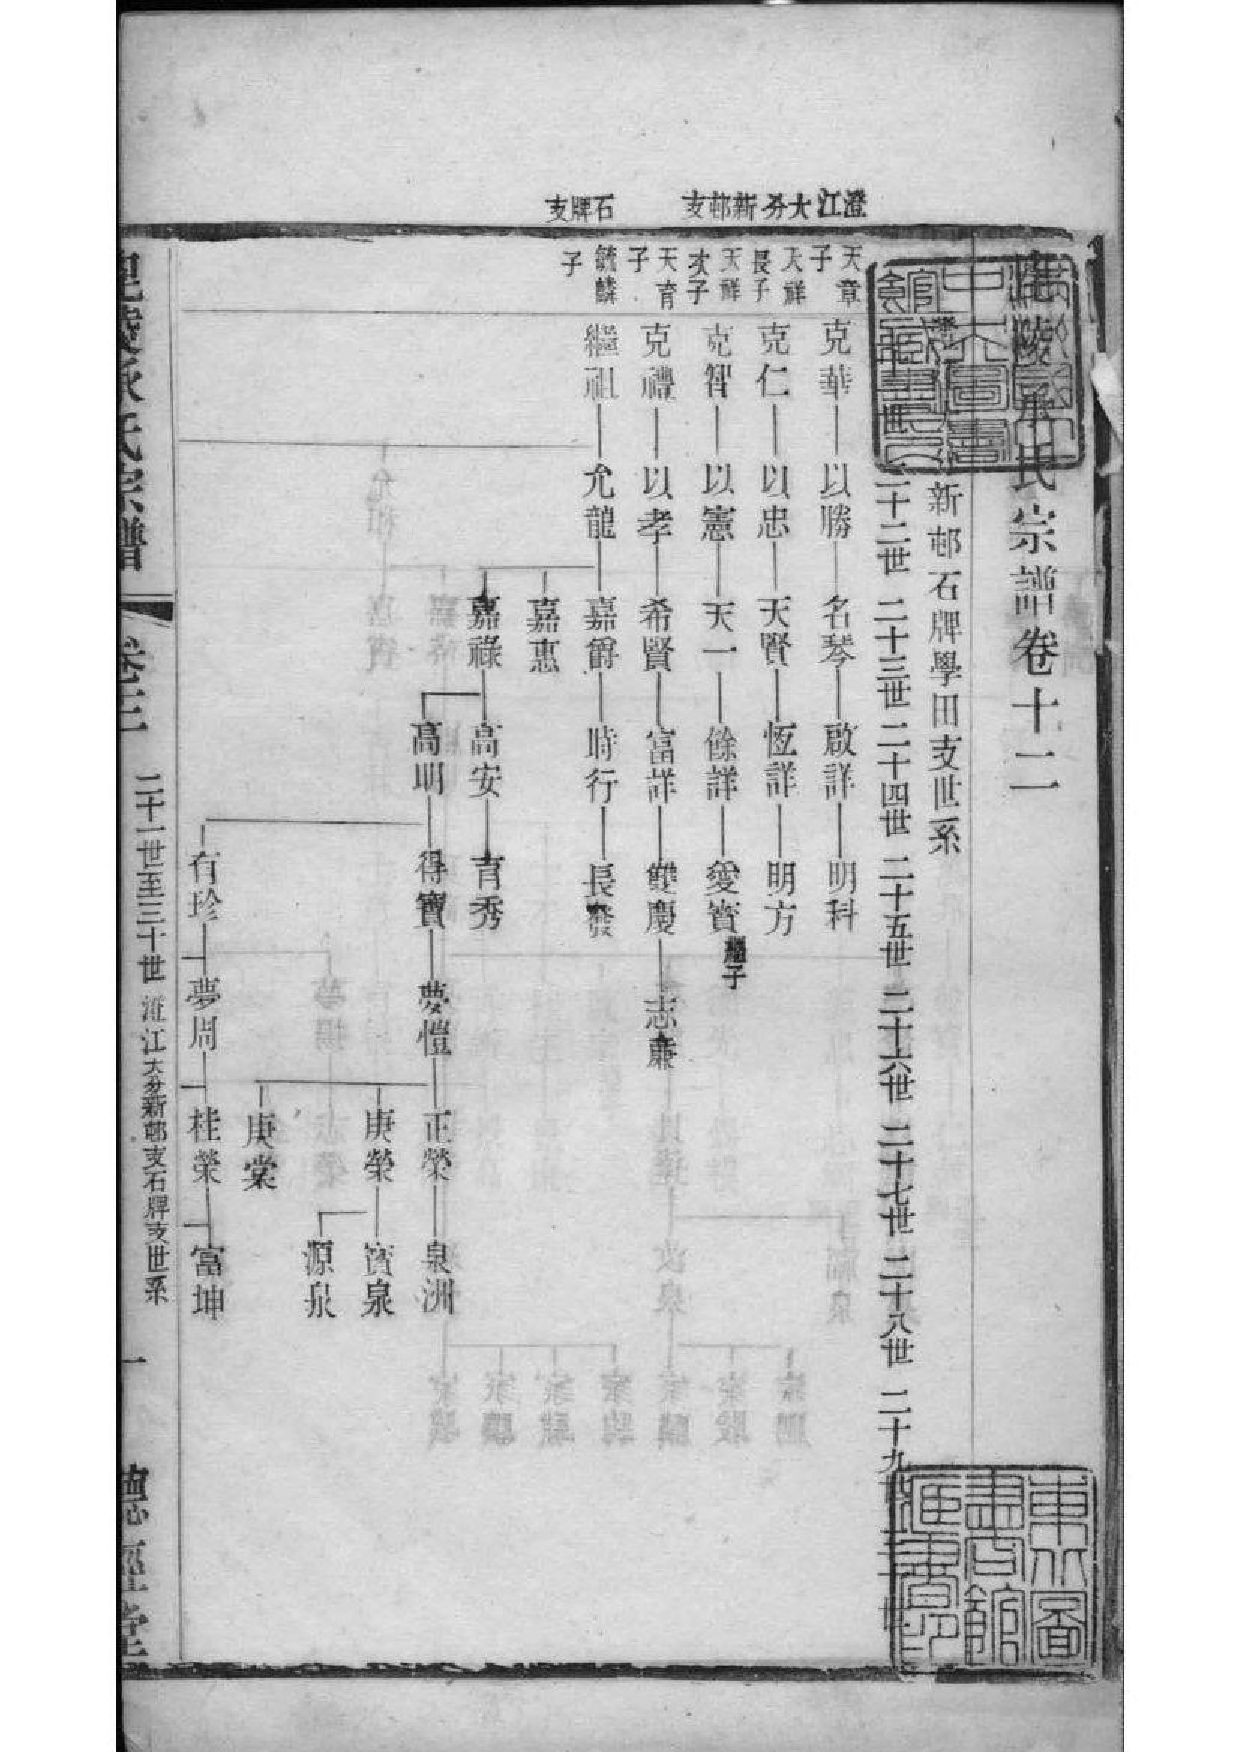 澄江大分新邨支
石牌支
毘陵承氏宗譜卷十二
新邨石牌學田支世系
二十二世 二十三世 二十四世 二十五世 二十六世 二十七世 二十八世 二十九
天章子 克華 以勝 名琴 啟詳 明科
天祥長子 克仁 以忠 天賢 恆詳 明方
天祥次子 克智 以憲 天一 餘詳 愛寶 繼子
天育子 克禮 以孝 希賢 富詳 雙慶 志廉
毓麟子 繼祖 允龍 嘉爵 時行 長發
嘉惠
嘉祿 高安 育秀
高明 得寶 夢愷 正榮 泉洲
庚榮 寶泉
源泉
庚棠
有珍 夢周 桂榮 富坤
毘陵承氏宗譜
卷十二
二十一世至三十世 澄江大分新邨支石牌支世系
一
德經堂
東方圖書館